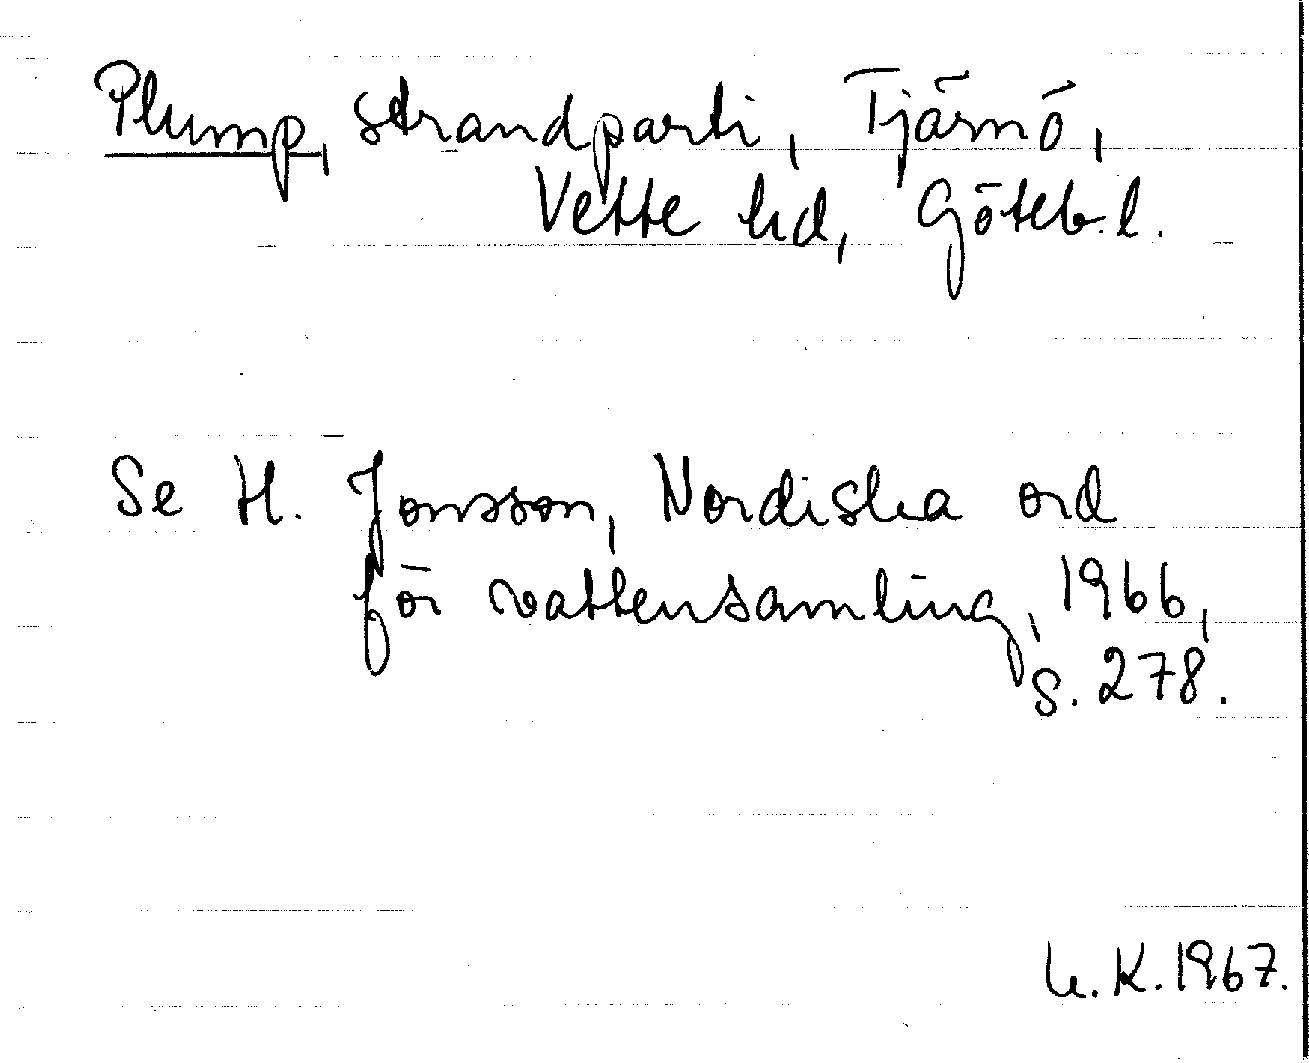 Plump, strandparti, Tjärnö,
Vette hd, Götebl.
Se H. Jonsson, Nordiska ord
för vattensamling, 1966,
s. 278.
K. 1967.